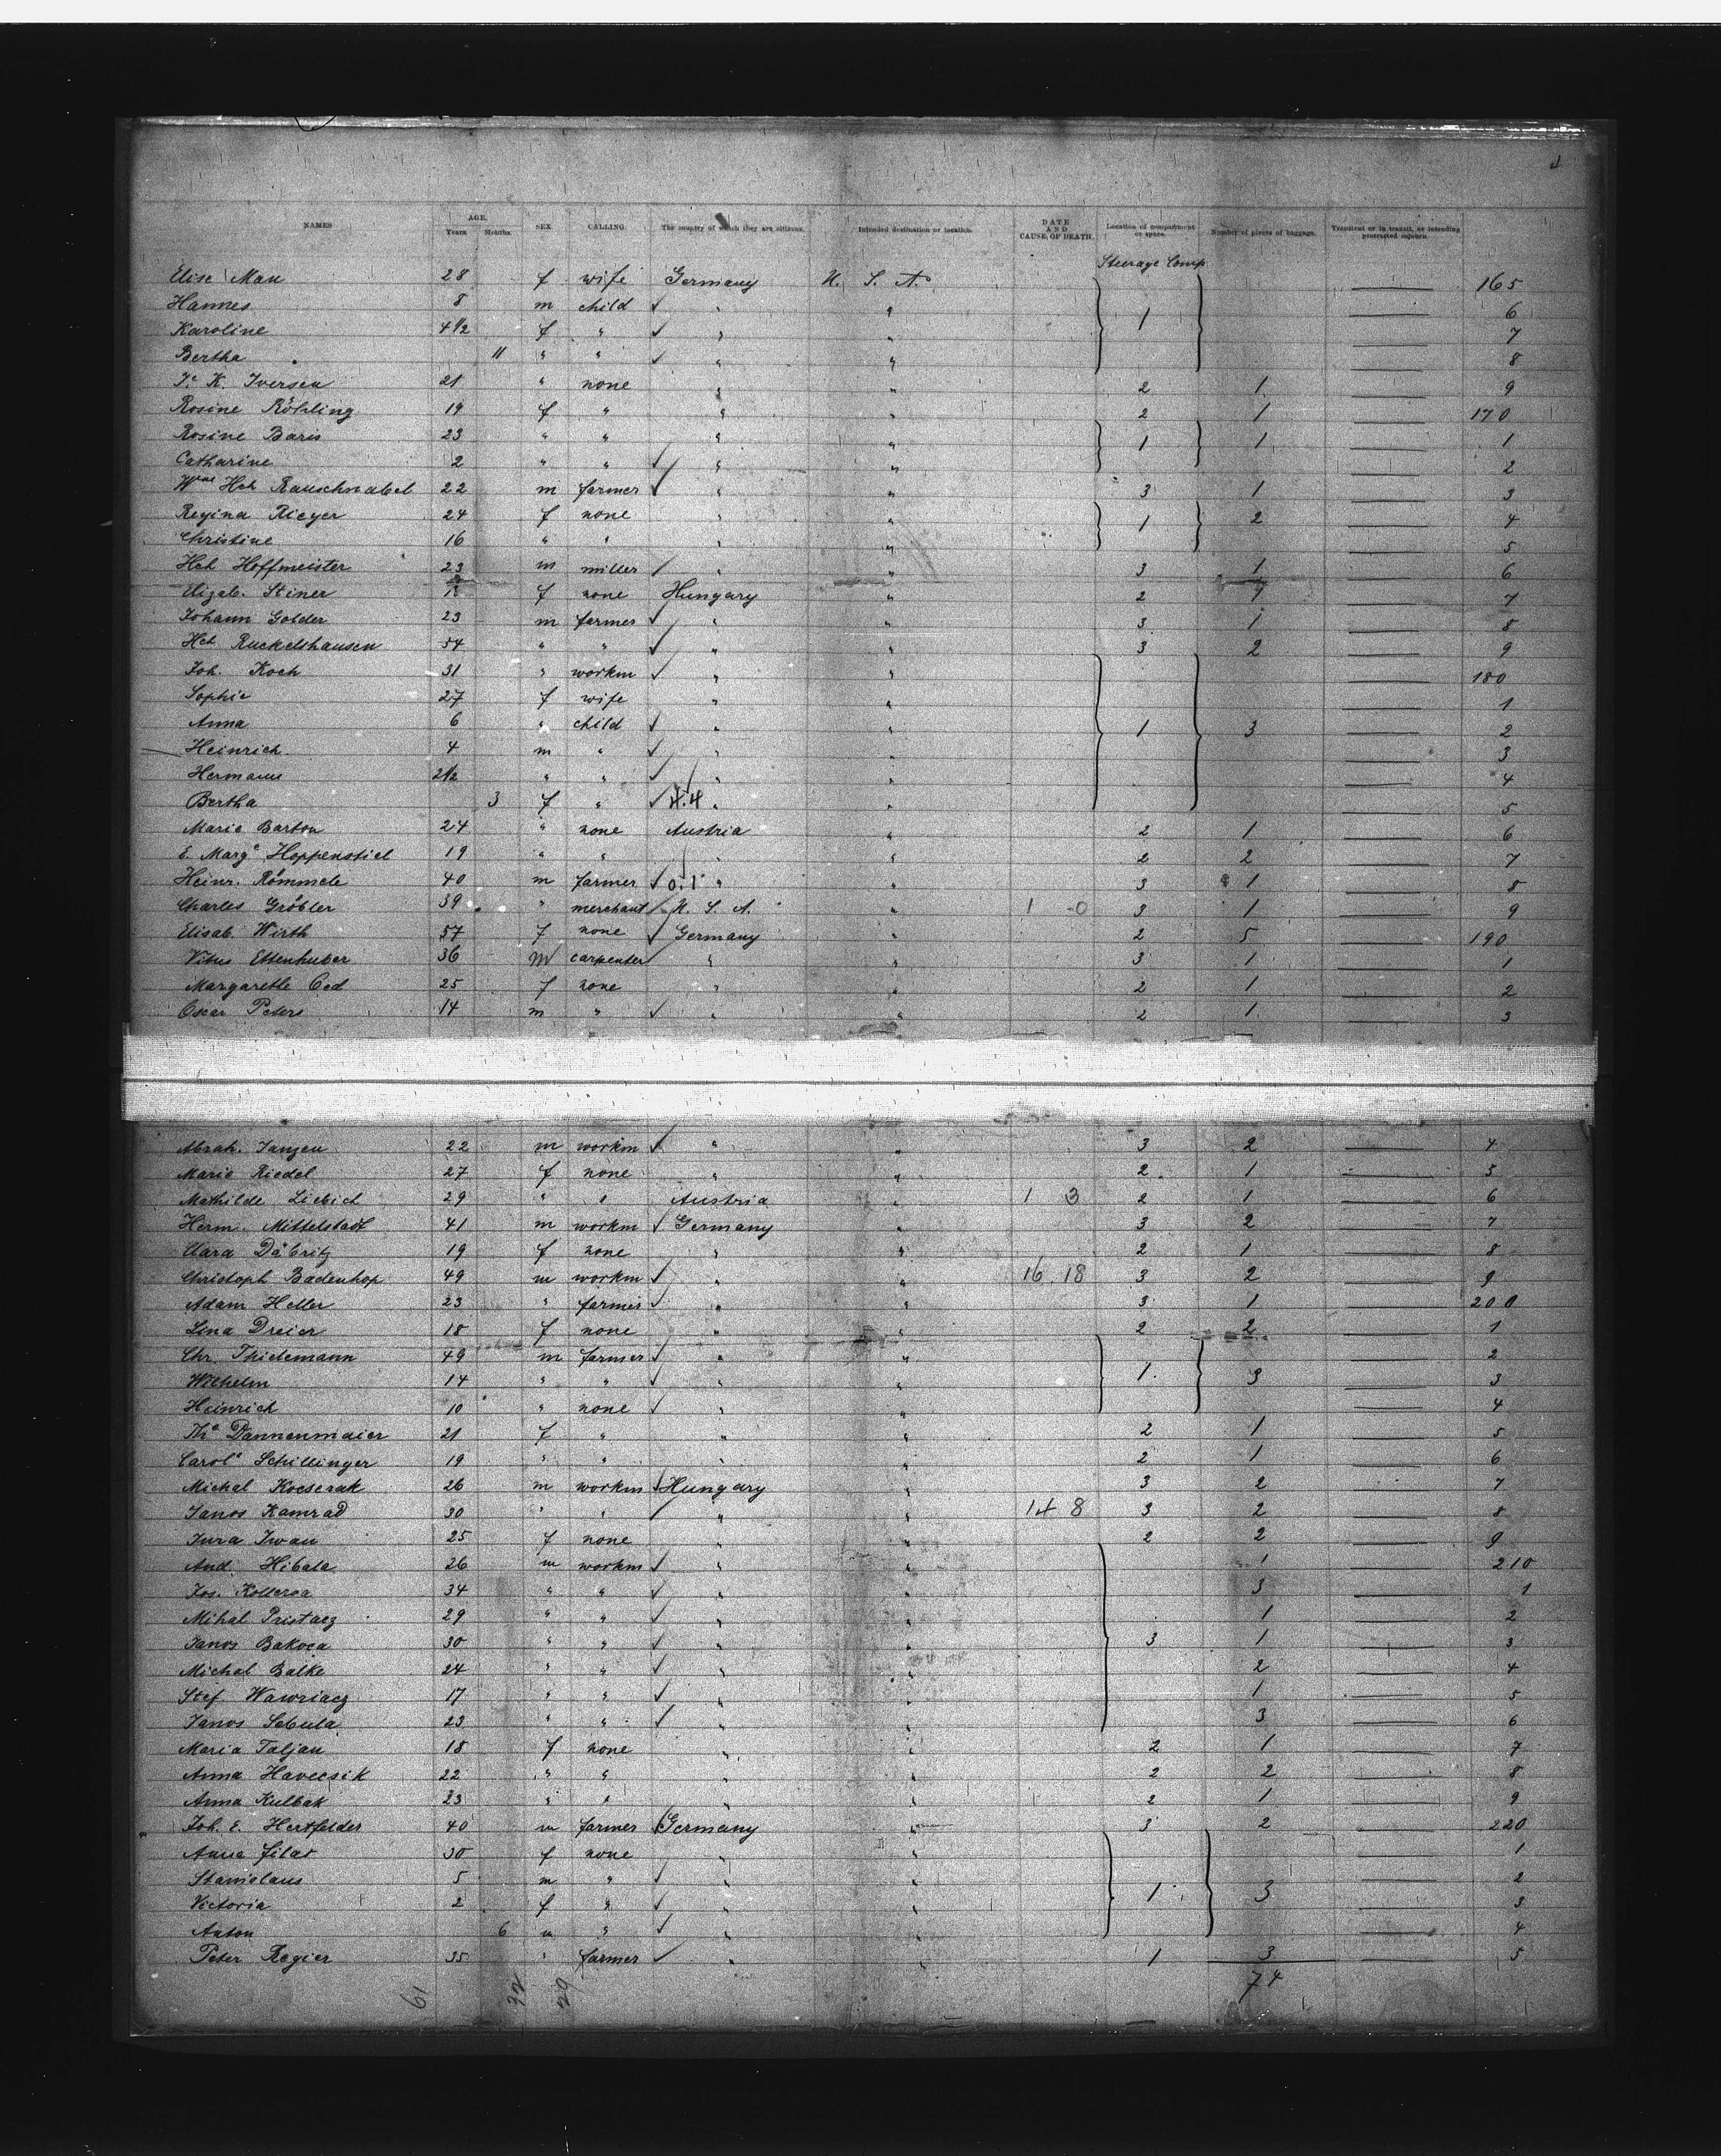 4
NAMES AGE. Years Months. SEX. CALLING. The country of which they are citizens. Intended destination or location. DATE AND CAUSE OF DEATH. Location of compartment or space. Number of pieces of baggage. Transient or in transit, or intending protracted sojourn.
Steerage Comp
Elise Mau 28 f wife Germany U. S. A. 165
Hannes 8 m child ✓ " " 1 6
Karoline 4 1/2 f " ✓ " " 7
Bertha 11 " " ✓ " " 8
K. Iversen 21 " none " " 2 1 9
Rosine Röhling 19 f " " " 2 1 170
Rosine Baris 23 " " " " 1 1 1
Catharine 2 " " ✓ " " 2
Hch Rauschnabel 22 m farmer ✓ " " 3 1 3
Regina Rieger 24 f none " " 1 2 4
Christine 16 " " " " 5
Hch Hoffmeister 23 m miller ✓ " " 3 1 6
Elizab. Stiner f none Hungary " 2 1 7
Johann Golder 23 m farmer ✓ " " 3 1 8
Hch Ruckelshausen 54 " " ✓ " " 3 2 9
Joh. Koch 31 " workm ✓ " " 180
Sophie 27 f wife " " 1
Anna 6 " child ✓ " " 1 3 2
Heinrich 4 m " ✓ " " 3
Hermann 2 1/2 " " ✓ " " 4
Bertha 3 f " ✓ 4.4 " " 5
Marie Barton 24 " none Austria " 2 1 6
E. Marge Hoppenstiel 19 " " " " 2 2 7
Heinr. Römmele 40 m farmer ✓ 0.1 " " 3 1 8
Charles Gröbler 39 " merchant ✓ U. S. A. " 1 0 3 1 9
Elisab. Wirth 57 f none ✓ Germany " 2 5 190
Vitus Ettenhuber 36 m carpenter ✓ " " 3 1 1
Margarethe 25 f none " " 2 1 2
Oscar Peters 14 m " ✓ " " 2 1 3
Abrah. Janzen 22 m workm ✓ " " 3 2 4
Marie Riedel 27 f none " " 2 1 5
Mathilde Liebich 29 " " Austria " 1 3 2 1 6
Herm. Mittelstadt 41 m workm ✓ Germany " 3 2 7
Clara Däbritz 19 f none " " 2 1 8
Christoph Badenhop 49 m workm ✓ " " 16 18 3 2 9
Adam Heller 23 " farmer ✓ " " 3 1 200
Lina Dreier 18 f none " " 2 2 1
Chr. Thielemann 49 m farmer ✓ " " 2
Wilhelm 14 " " ✓ " " 1 3 3
Heinrich 10 " none ✓ " " 4
Dannenmaier 21 f " " " 2 1 5
Carole Schillinger 19 " " " " 2 1 6
Michal Kocserak 26 m workm ✓ Hungary " 3 2 7
Janos Kamrad 30 " " ✓ " " 14 8 3 2 8
Jura Iwan 25 f none " " 2 2 9
And. Hibala 26 m workm ✓ " " 1 210
Jos. 34 " " ✓ " " 3 1
Mihal Pristacz 29 " " ✓ " " 1 2
Janos Bakoca 30 " " ✓ " " 3 1 3
Michal Balke 24 " " ✓ " " 2 4
Stef. Wawriacz 17 " " ✓ " " 1 5
Janos Sebula 23 " " ✓ " " 3 6
Maria Taljan 18 f none " " 2 1 7
Anna Havecsik 22 " " " " 2 2 8
Anna Kulbak 23 " " " " 2 1 9
Joh. E. Hertfelder 40 m farmer Germany " 3 2 220
Anna Filar 30 f none " " 1
Stanislaus 5 m " ✓ " " 2
Victoria 2 f " ✓ " " 1 3 3
Anton 6 m " ✓ " " 4
Peter Regier 35 " farmer ✓ " " 1 3 5
61 32 29 74